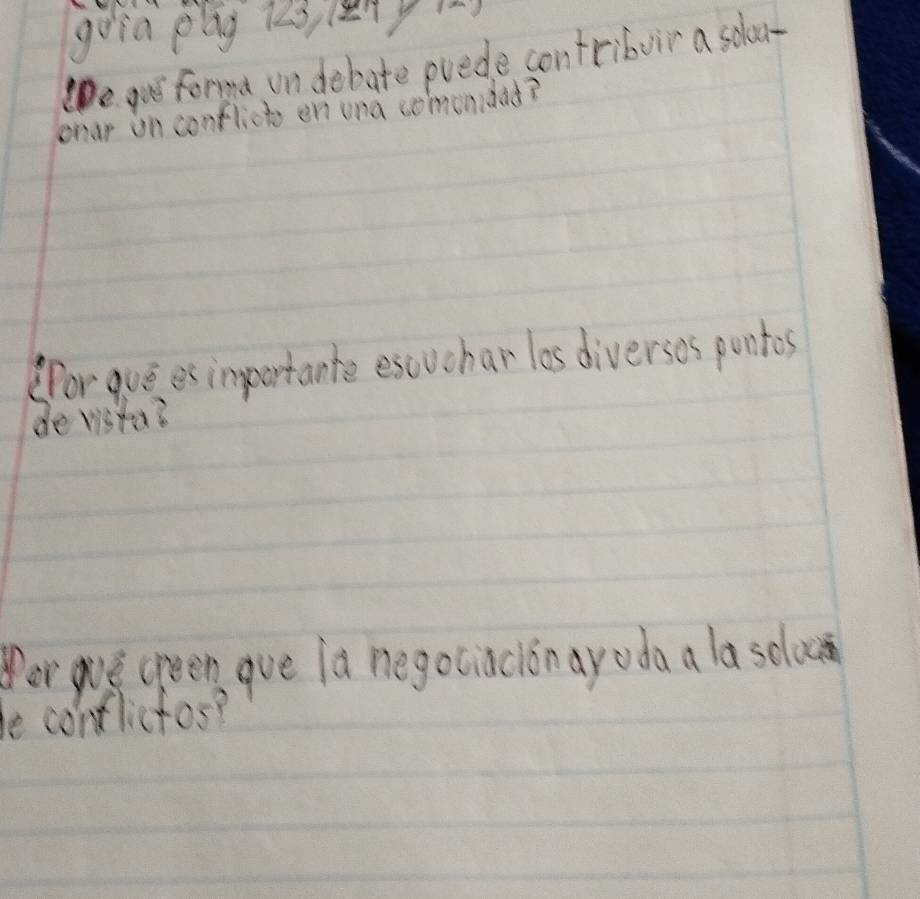 guia pág 123, 124 y
¿De qué forma un debate puede contribuir a soluci-
onar un conflicto en una comunidad?
¿Por qué es importante escuchar los diversos puntos
de vista?
¿Por qué creen que la negociación ayuda a la
de conflictos?